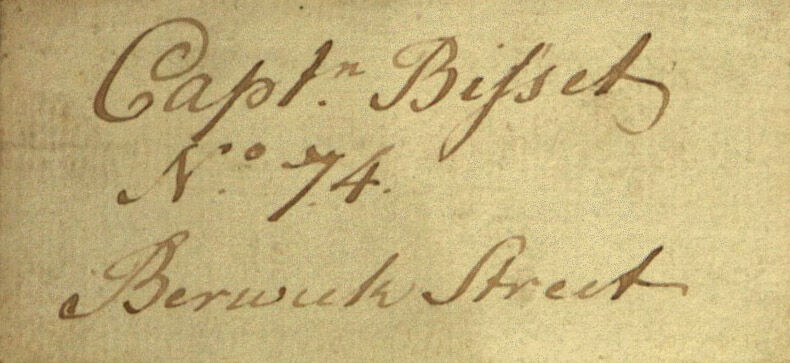 Capt.ⁿ Biſset
N.º 74.
Berwick Street